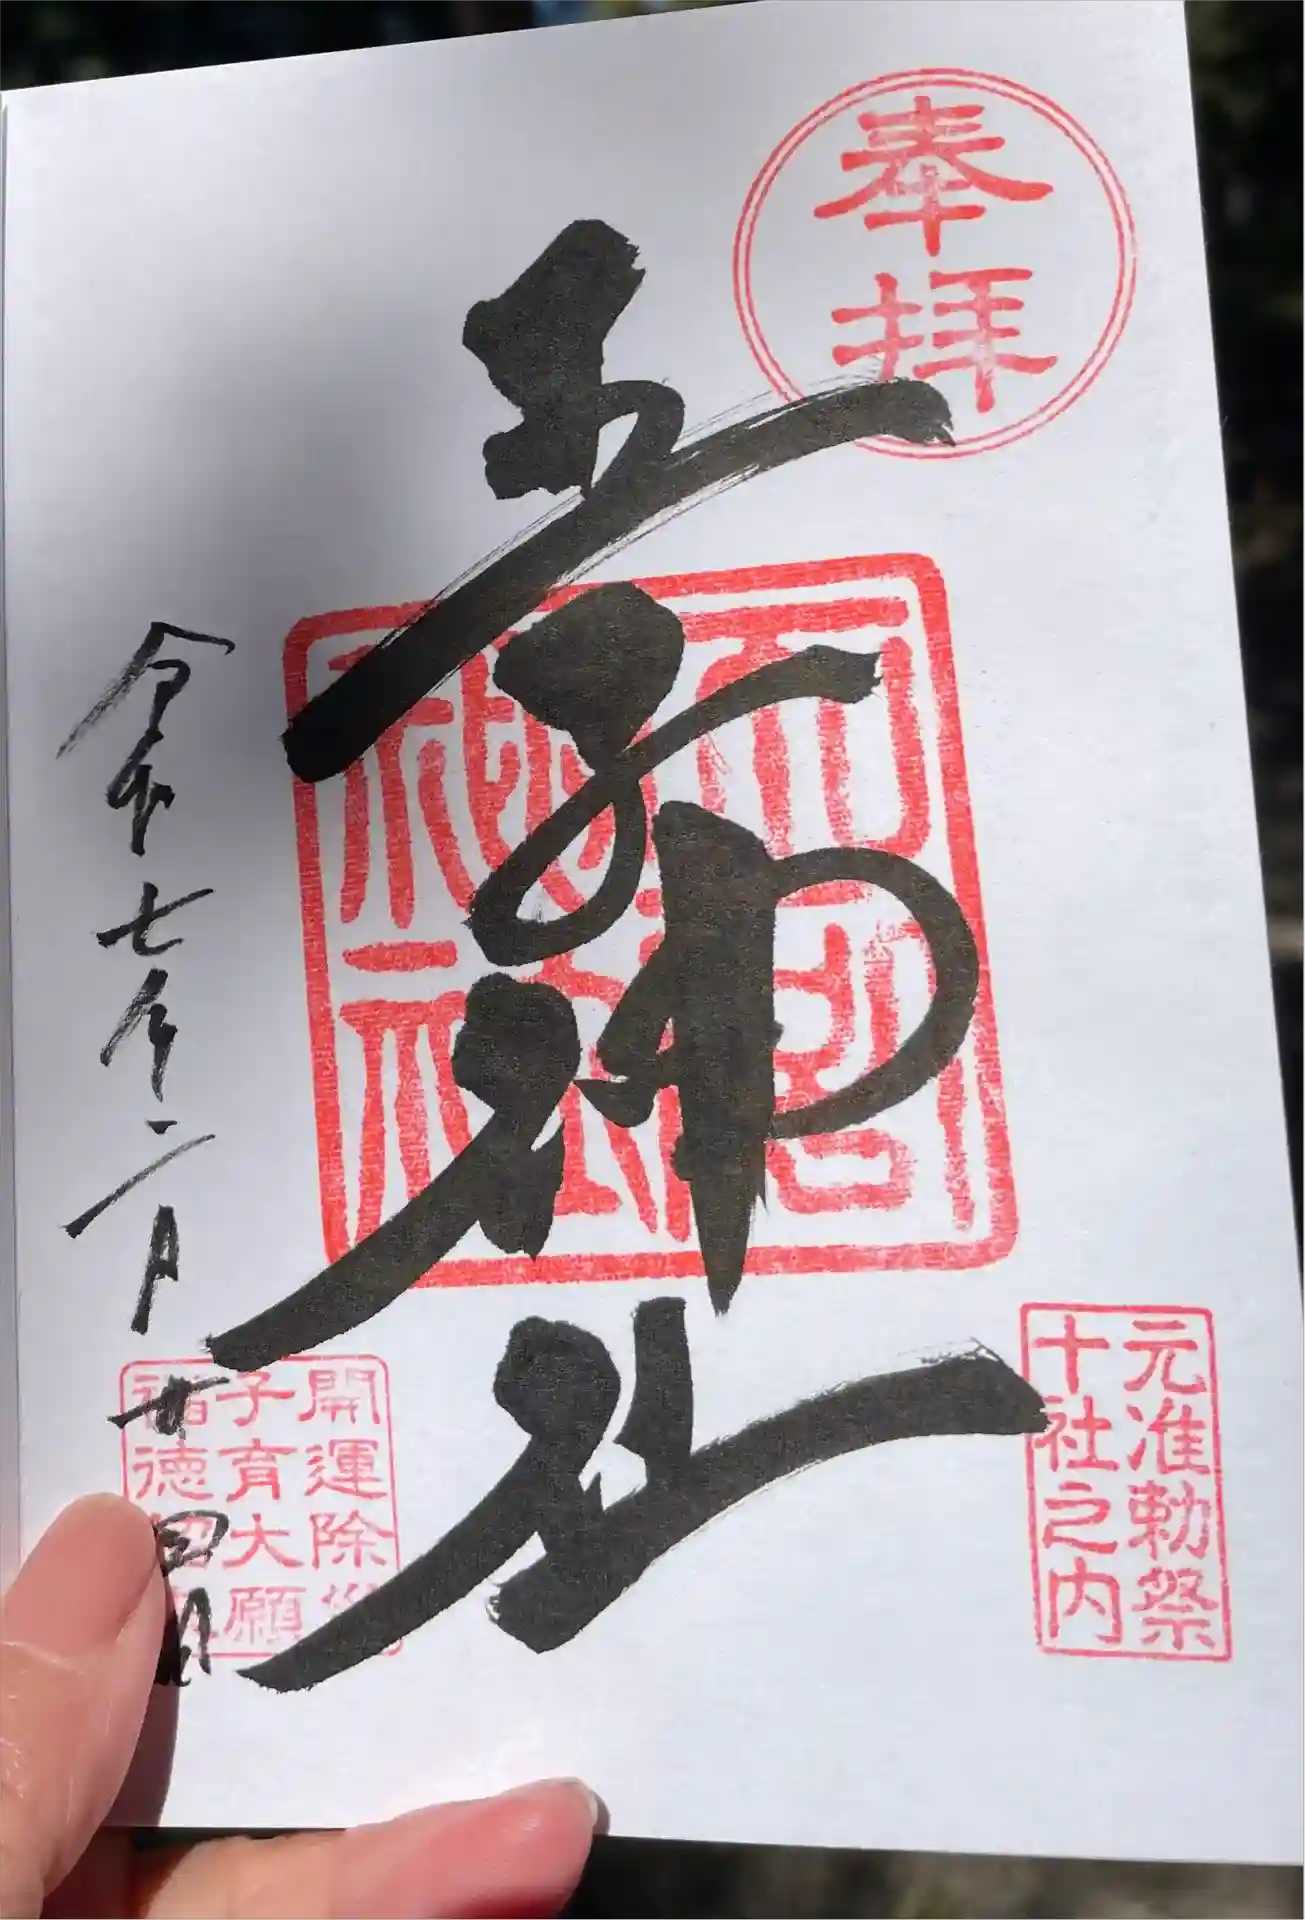 奉拝
元准勅祭
十社之内
王子神社
開運除災
子育大願
福徳
令和七年二月廿四日